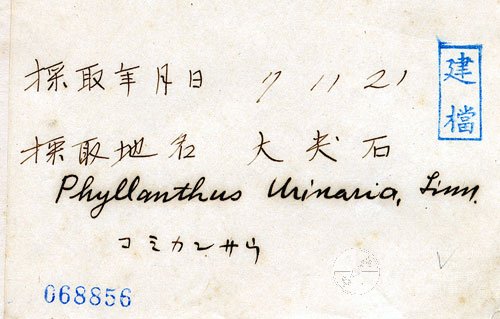 採取年月日 17 11 21
建檔
採取地名 大尖石
Phyllanthus Urinaria, Linn.
コミカンサウ
068856